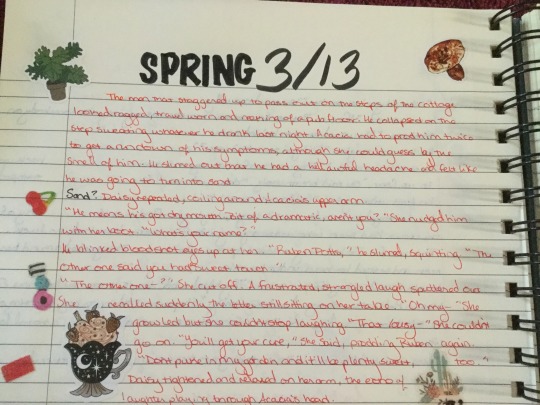 SPRING 3/13
The man that staggered up to pass out on the steps of the cottage
looked ragged, travel worn and reeking of a pub floor. He collapsed on the
step sweating whatever he drank last night. Acacia had to prod him twice
to get a rundown of his symptoms, although she could guess by the
smell of him. He slurred out that he had a hell awful headache and felt like
he was going to turn into sand.
Sand? Daisy repeated, coiling around Acacia's upper arm.
"He means he's got dry mouth. Bit of a dramatic, aren't you?" She nudged him
with her boot. "What's your name?"
He blinked bloodshot eyes up at her. "Ruben Potts," he slurred, squinting. "The
other one said you had sweet touch."
"The other one-?" She cut off. A frustrated, strangled laugh sputtered out.
She recalled suddenly the letter still sitting on her table. "Oh my-" She
growled but she couldn't stop laughing. "That lousy-" She couldn't
go on. "You'll get your cure," she said, prodding Ruben again.
"Don't puke in my garden and it'll be plenty sweet, too."
Daisy tightened and relaxed on her arm, the echo of
laughter playing through Acacia's head.